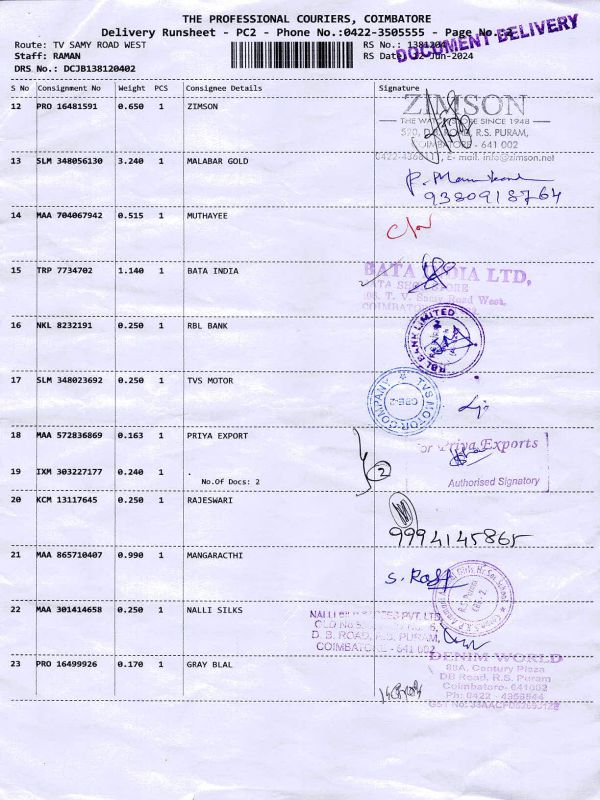 THE PROFESSIONAL COURIERS, COIMBATORE
Delivery Runsheet - PC2 - Phone No.:0422-3505555 - Page No.:
DOCUMENT DELIVERY
Route: TV SAMY ROAD WEST
RS No.: 1381204
Staff: RAMAN
RS Date: 12-Jun-2024
DRS No.: DCJB138120402
S No Consignment No Weight PCS Consignee Details Signature
12 PRO 16481591 0.650 1 ZIMSON
ZIMSON
THE WATCH STORE SINCE 1948
R.S. PURAM,
COIMBATORE - 641 002
E- mail. info@zimson.net
13 SLM 348056130 3.240 1 MALABAR GOLD
9380918764
14 MAA 704067942 0.515 1 MUTHAYEE
15 TRP 7734702 1.140 1 BATA INDIA
BATA INDIA LTD,
T. V. Samy Road West,
16 NKL 8232191 0.250 1 RBL BANK
RBL BANK LIMITED
17 SLM 348023692 0.250 1 TVS MOTOR
TVS MOTOR COMPANY
CBE-2
18 MAA 572836869 0.163 1 PRIYA EXPORT
for Priya Exports
Authorised Signatory
2
19 IXM 303227177 0.240 1 .
No.Of Docs: 2
20 KCM 13117645 0.250 1 RAJESWARI
9994145865
21 MAA 865710407 0.990 1 MANGARACTHI
22 MAA 301414658 0.250 1 NALLI SILKS
PVT. LTD.
D. B. ROAD, R.S. PURAM,
COIMBATORE - 641 002
23 PRO 16499926 0.170 1 GRAY BLAL
DENIM WORLD
88A, Century Plaza
DB Road, R.S. Puram
Coimbatore- 641002
Ph: 0422 - 4356844